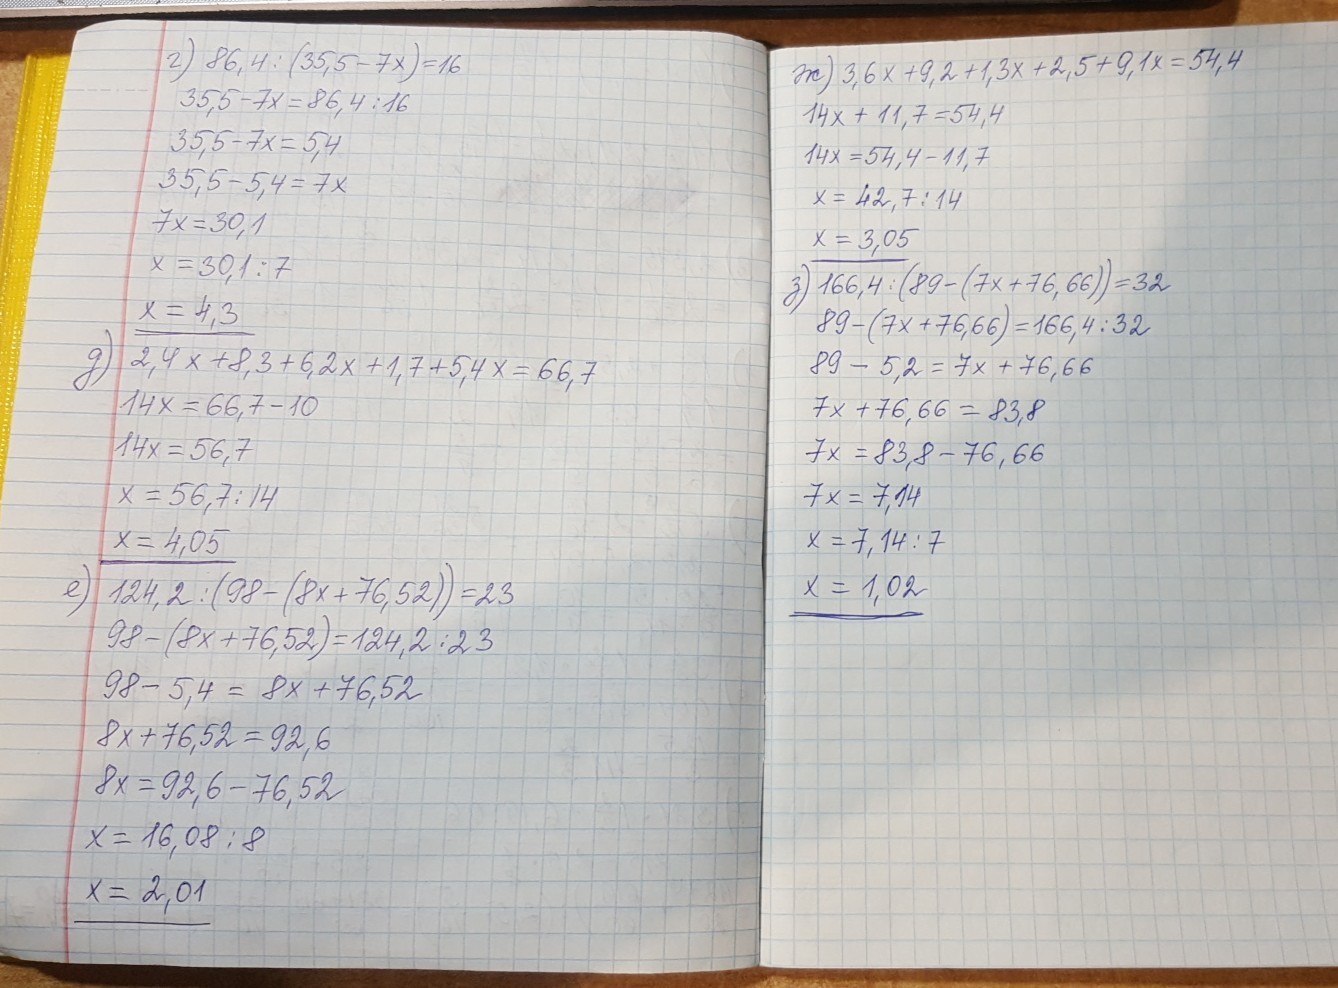 г) 86,4 : (35,5 - 7x) = 16
35,5 - 7x = 86,4 : 16
35,5 - 7x = 5,4
35,5 - 5,4 = 7x
7x = 30,1
x = 30,1 : 7
x = 4,3
д) 2,4x + 8,3 + 6,2x + 1,7 + 5,4x = 66,7
14x = 66,7 - 10
14x = 56,7
x = 56,7 : 14
x = 4,05
е) 124,2 : (98 - (8x + 76,52)) = 23
98 - (8x + 76,52) = 124,2 : 23
98 - 5,4 = 8x + 76,52
8x + 76,52 = 92,6
8x = 92,6 - 76,52
x = 16,08 : 8
x = 2,01
ж) 3,6x + 9,2 + 1,3x + 2,5 + 9,1x = 54,4
14x + 11,7 = 54,4
14x = 54,4 - 11,7
x = 42,7 : 14
x = 3,05
з) 166,4 : (89 - (7x + 76,66)) = 32
89 - (7x + 76,66) = 166,4 : 32
89 - 5,2 = 7x + 76,66
7x + 76,66 = 83,8
7x = 83,8 - 76,66
7x = 7,14
x = 7,14 : 7
x = 1,02